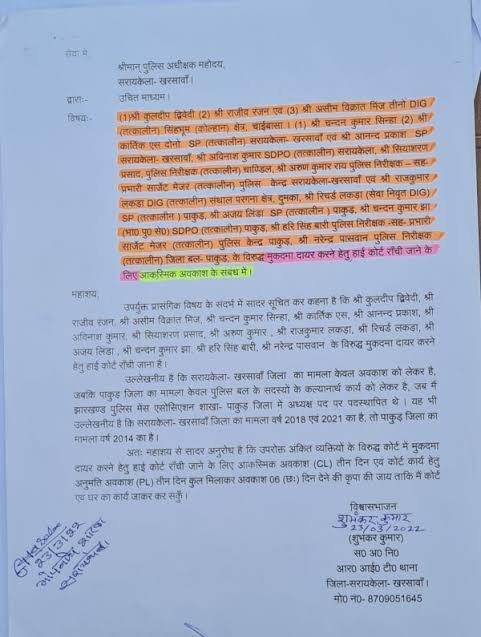 सेवा मे,
श्रीमान् पुलिस अधीक्षक महोदय,
सरायकेला- खरसावाँ।
द्वाराः- उचित माध्यम।
विषयः- (1)श्री कुलदीप द्विवेदी (2) श्री राजीव रंजन एवं (3) श्री असीम विक्रांत मिंज तीनो DIG
(तत्कालीन) सिंहभूम (कोल्हान) क्षेत्र, चाईबासा। (1) श्री चन्दन कुमार सिन्हा (2) श्री
कार्तिक एस दोनो SP (तत्कालीन) सरायकेला- खरसावाँ एवं श्री आनन्द प्रकाश SP
सरायकेला- खरसावाँ, श्री अविनाश कुमार SDPO (तत्कालीन) सरायकेला, श्री सियाशरण
प्रसाद, पुलिस निरीक्षक (तत्कालीन) चाण्डिल, श्री अरुण कुमार राय पुलिस निरीक्षक - सह-
प्रभारी सार्जेट मेजर (तत्कालीन) पुलिस केन्द्र सरायकेला-खरसावाँ एवं श्री राजकुमार
लकड़ा DIG (तत्कालीन) संथाल परगना क्षेत्र, दुमका, श्री रिचर्ड लकड़ा (सेवा निवृत DIG)
SP (तत्कालीन ) पाकुड़, श्री अजय लिंडा SP (तत्कालीन ) पाकुड़, श्री चन्दन कुमार झा
(भा0 पु0 से0) SDPO (तत्कालीन) पाकुड़, श्री हरि सिंह बारी पुलिस निरीक्षक -सह- प्रभारी
सार्जेट मेजर (तत्कालीन) पुलिस केन्द्र पाकुड़, श्री नरेन्द्र पासवान पुलिस निरीक्षक
(तत्कालीन) जिला बल- पाकुड़, के विरुद्ध मुकदमा दायर करने हेतु हाई कोर्ट राँची जाने के
लिए आकस्मिक अवकाश के संबंध में।
महाशय,
उपर्युक्त प्रासंगिक विषय के संदर्भ में सादर सूचित कर कहना है कि श्री कुलदीप द्विवेदी, श्री
राजीव रंजन, श्री असीम विक्रांत मिंज, श्री चन्दन कुमार सिन्हा, श्री कार्तिक एस, श्री आनन्द प्रकाश, श्री
अविनाश कुमार, श्री सियाशरण प्रसाद, श्री अरुण कुमार , श्री राजकुमार लकड़ा, श्री रिचर्ड लकड़ा, श्री
अजय लिंडा , श्री चन्दन कुमार झा, श्री हरि सिंह बारी, श्री नरेन्द्र पासवान के विरुद्ध मुकदमा दायर करने
हेतु हाई कोर्ट राँची जाना है।
उल्लेखनीय है कि सरायकेला- खरसावाँ जिला का मामला केवल अवकाश को लेकर है,
जबकि पाकुड़ जिला का मामला केवल पुलिस बल के सदस्यों के कल्यानार्थ कार्य को लेकर है, जब मैं
झारखण्ड पुलिस मेंस एसोसिएशन शाखा- पाकुड़ जिला में अध्यक्ष पद पर पदस्थापित थे । यह भी
उल्लेखनीय है कि सरायकेला- खरसावाँ जिला का मामला वर्ष 2018 एवं 2021 का है, तो पाकुड़ जिला का
मामला वर्ष 2014 का है।
अतः महाशय से सादर अनुरोध है कि उपरोक्त अंकित व्यक्तियों के विरुद्ध कोर्ट में मुकदमा
दायर करने हेतु हाई कोर्ट राँची जाने के लिए आकस्मिक अवकाश (CL) तीन दिन एवं कोर्ट कार्य हेतु
अनुमति अवकाश (PL) तीन दिन कुल मिलाकर अवकाश 06 (छः) दिन देने की कृपा की जाय ताकि मैं कोर्ट
एवं घर का कार्य जाकर कर सकूँ।
विश्वासभाजन
शुभंकर कुमार
23/03/2022
(शुभंकर कुमार)
स0 अ0 नि0
आर0 आई0 टी0 थाना
जिला-सरायकेला- खरसावाँ।
मो0 न0- 8709051645
23/3/22
गोपनीय शाखा